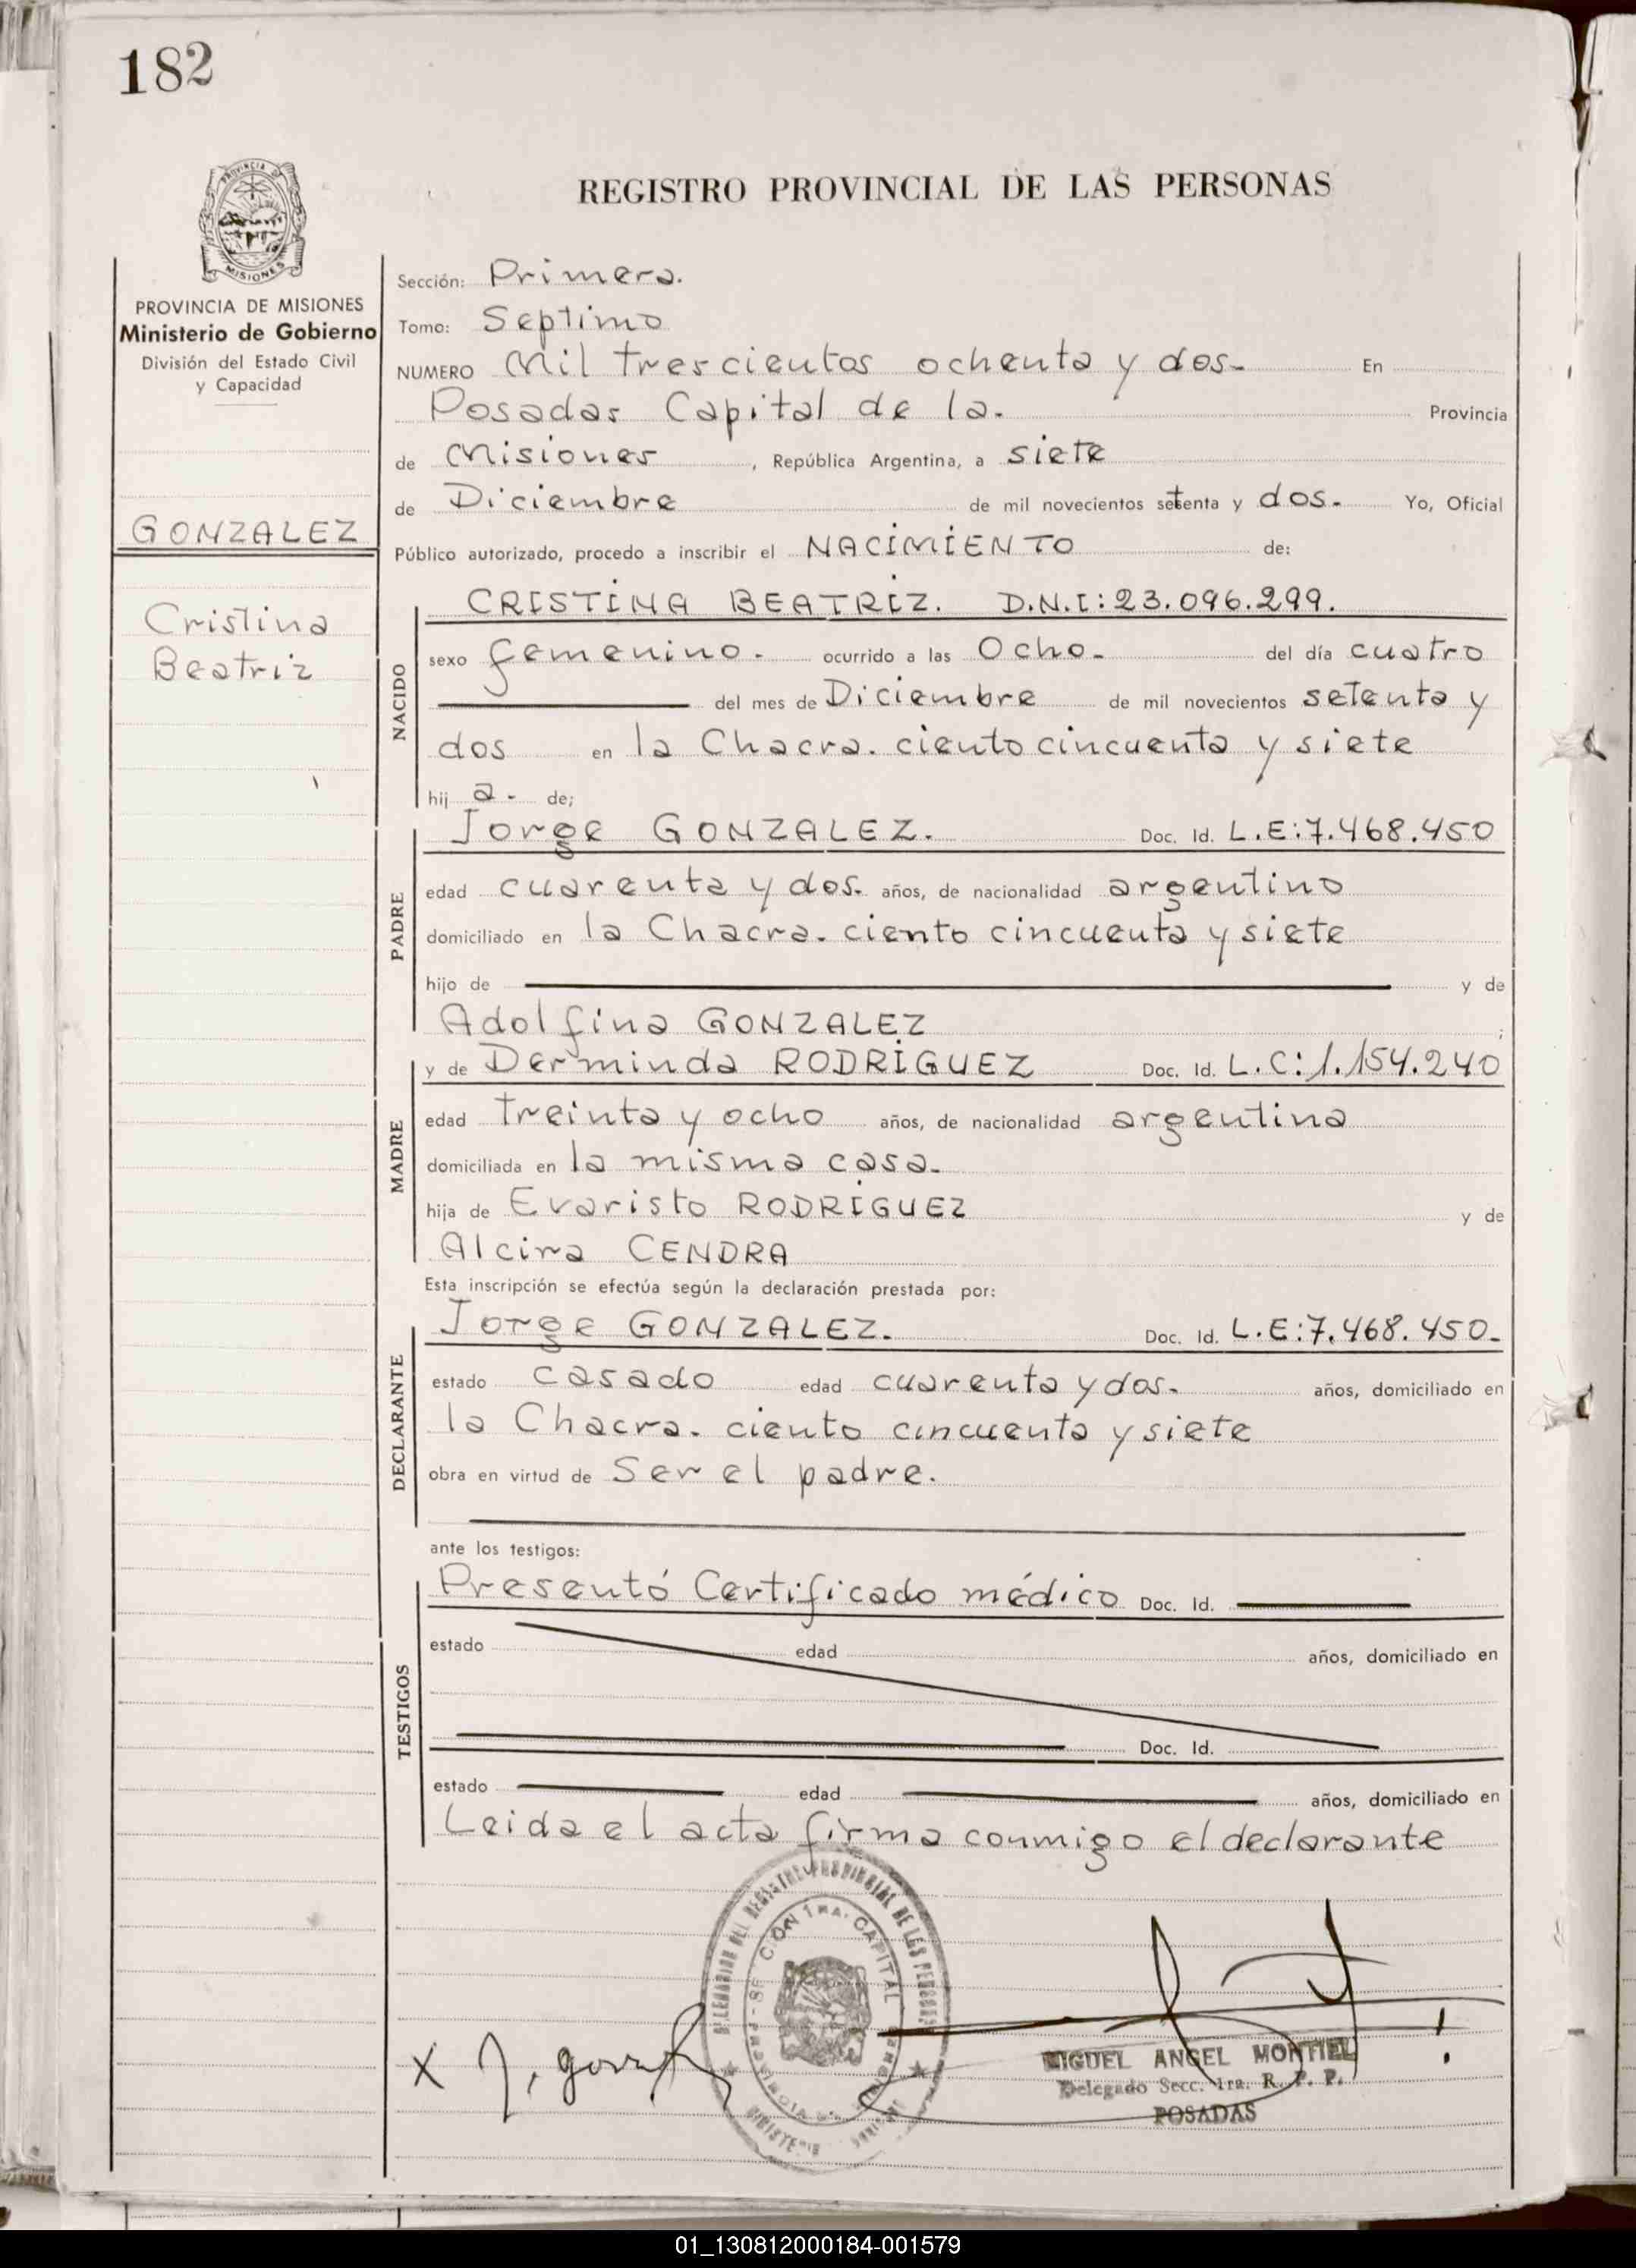 182
REGISTRO PROVINCIAL DE LAS PERSONAS
PROVINCIA
MISIONES
PROVINCIA DE MISIONES
Ministerio de Gobierno
División del Estado Civil
y Capacidad
GONZALEZ
Cristina
Beatriz
Sección: Primera.
Tomo: Septimo
NUMERO Mil trescientos ochenta y dos- En
Posadas Capital de la. Provincia
de Misiones, República Argentina, a siete
de Diciembre de mil novecientos setenta y dos.- Yo, Oficial
Público autorizado, procedo a inscribir el NACIMIENTO de:
NACIDO
CRISTINA BEATRIZ. D.N.I:23.096.299.
sexo femenino.- ocurrido a las Ocho.- del día cuatro
del mes de Diciembre de mil novecientos setenta y
dos en la Chacra. ciento cincuenta y siete
hij a- de;
PADRE
Jorge GONZALEZ. Doc. Id. L.E:7.468.450
edad cuarenta y dos. años, de nacionalidad argentino
domiciliado en la Chacra. ciento cincuenta y siete
hijo de y de
Adolfina GONZALEZ ;
MADRE
y de Derminda RODRIGUEZ Doc. Id. L.C:1.154.240
edad treinta y ocho años, de nacionalidad argentina
domiciliada en la misma casa.
hija de Evaristo RODRIGUEZ y de
Alcira CENDRA
Esta inscripción se efectúa según la declaración prestada por:
DECLARANTE
Jorge GONZALEZ. Doc. Id. L.E:7.468.450-
estado casado edad cuarenta y dos.- años, domiciliado en
la Chacra. ciento cincuenta y siete
obra en virtud de Ser el padre.
ante los testigos:
TESTIGOS
Presentó Certificado médico Doc. Id.
estado edad años, domiciliado en
Doc. Id.
estado edad años, domiciliado en
Leida el acta firma conmigo el declarante
SECCION 1RA. CAPITAL
X J, gonz
MIGUEL ANGEL MONTIEL
Delegado Secc. 1ra. R. P. P.
POSADAS
01_130812000184-001579